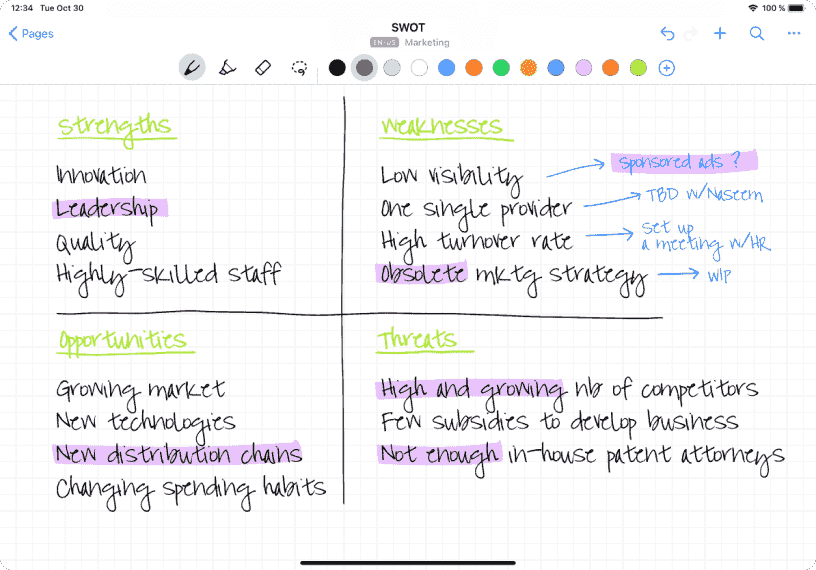 12:34 Tue Oct 30
100 %
Pages
SWOT
EN-US Marketing
Strengths
Innovation
Leadership
Quality
Highly-skilled staff
Weaknesses
Low visibility
sponsored ads ?
One single provider
TBD w/Naseem
High turnover rate
set up
a meeting w/HR
Obsolete mktg strategy
WIP
Opportunities
Growing market
New technologies
New distribution chains
Changing spending habits
Threats
High and growing nb of competitors
Few subsidies to develop business
Not enough in-house patent attorneys